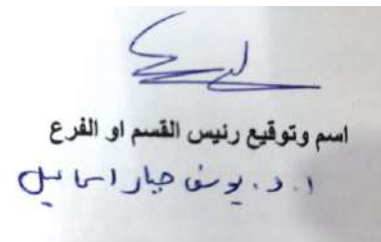 اسم وتوقيع رئيس القسم او الفرع
ا. د. يوسف جبار اسماعيل